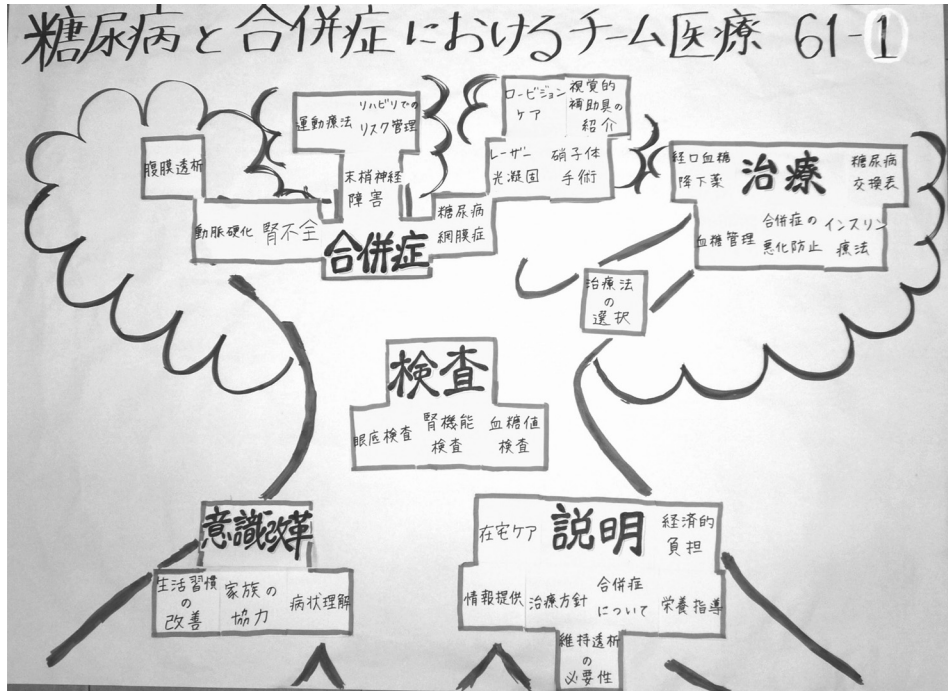 糖尿病と合併症におけるチーム医療 61-1
腹膜透析
運動療法
リハビリでの
リスク管理
末梢神経
障害
動脈硬化
腎不全
合併症
糖尿病
網膜症
ロービジョン
ケア
視覚的
補助具の
紹介
レーザー
光凝固
硝子体
手術
経口血糖
降下薬
治療
糖尿病
交換表
血糖管理
合併症の
悪化防止
インスリン
療法
治療法
の
選択
検査
眼底検査
腎機能
検査
血糖値
検査
意識改革
生活習慣
の
改善
家族の
協力
病状理解
在宅ケア
説明
経済的
負担
情報提供
治療方針
合併症
について
栄養指導
維持透析
の
必要性